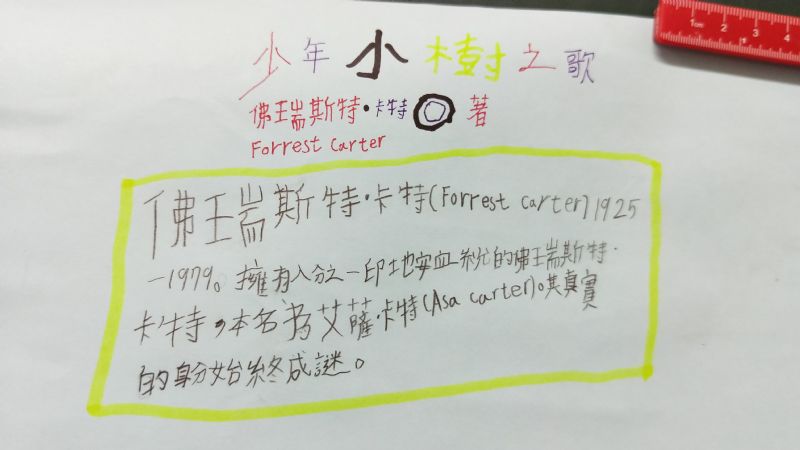 少年小樹之歌
佛瑞斯特·卡特◎著
Forrest Carter
佛瑞斯特·卡特(Forrest Carter)1925
-1979。擁有八分之一印地安血統的佛瑞斯特·
卡特,本名為艾薩·卡特(Asa Carter)。其真實
的身分始終成謎。
1cm 2 3 4